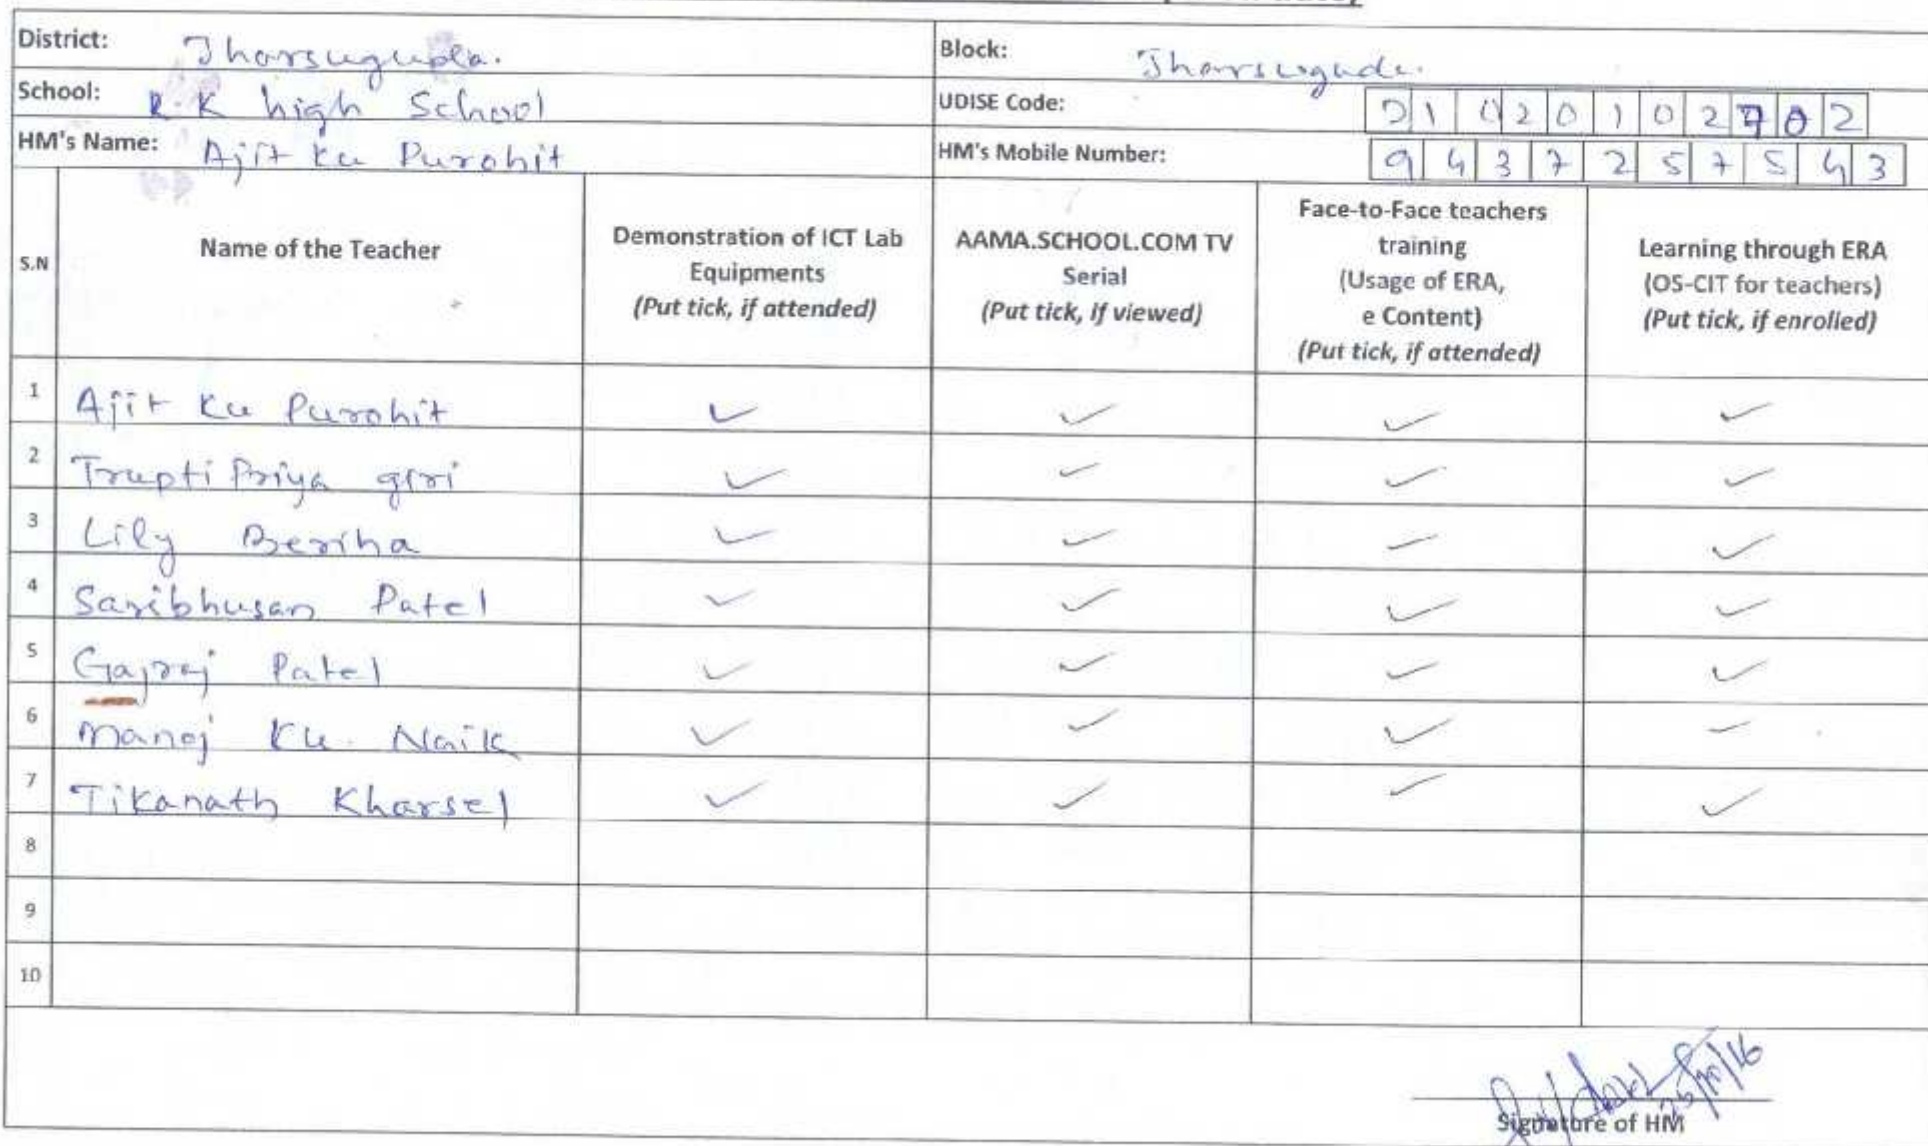 District: Jharsuguda. Block: Jharsuguda.
School: R.K high School UDISE Code: 21020102702
HM's Name: Ajit Ku Purohit HM's Mobile Number: 9437257543
S.N Name of the Teacher Demonstration of ICT Lab Equipments (Put tick, if attended) AAMA.SCHOOL.COM TV Serial (Put tick, if viewed) Face-to-Face teachers training (Usage of ERA, e Content) (Put tick, if attended) Learning through ERA (OS-CIT for teachers) (Put tick, if enrolled)
1 Ajit Ku Purohit ✓ ✓ ✓ ✓
2 Trupti Priya giri ✓ ✓ ✓ ✓
3 Lily Beriha ✓ ✓ ✓ ✓
4 Sasibhusan Patel ✓ ✓ ✓ ✓
5 Gajraj Patel ✓ ✓ ✓ ✓
6 Manoj Ku. Naik ✓ ✓ ✓ ✓
7 Tikanath Kharsel ✓ ✓ ✓ ✓
8
9
10
Signature of HM